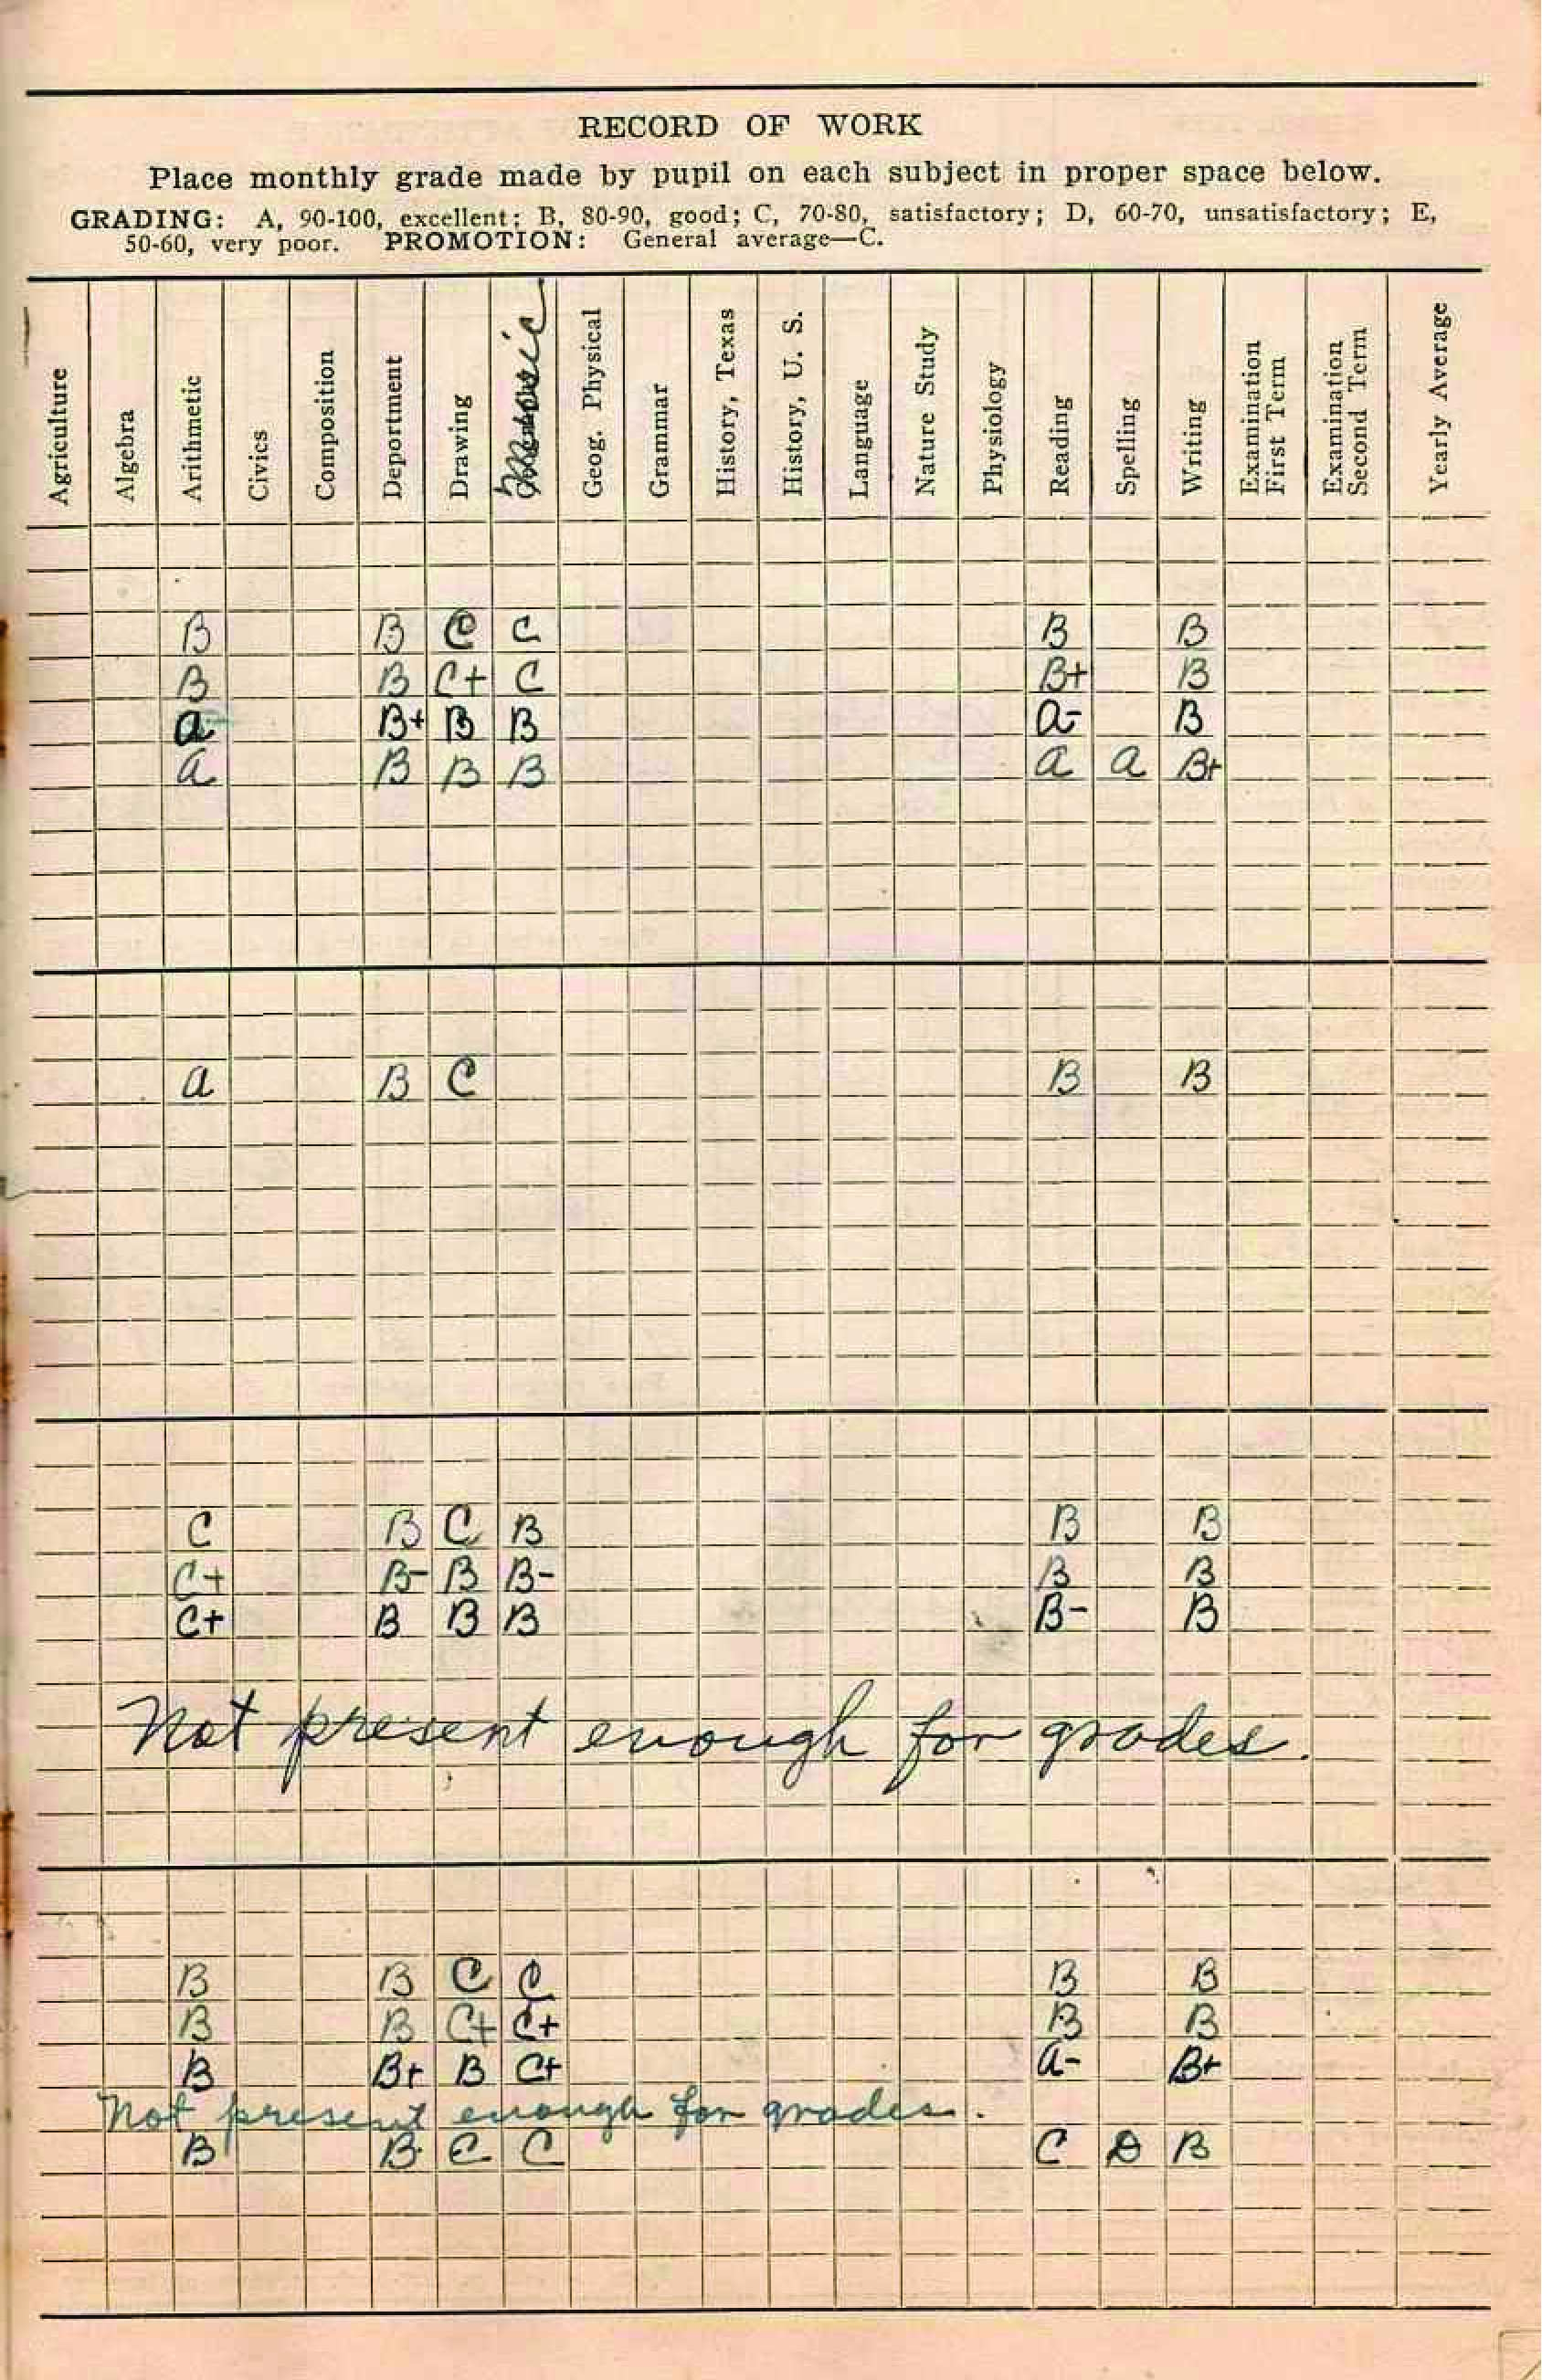 RECORD OF WORK
Place monthly grade made by pupil on each subject in proper space below.
GRADING: A, 90-100, excellent; B, 80-90, good; C, 70-80, satisfactory; D, 60-70, unsatisfactory; E,
50-60, very poor. PROMOTION: General average—C.
Agriculture
Algebra
Arithmetic
Civics
Composition
Deportment
Drawing
Music
Geog. Physical
Grammar
History, Texas
History, U. S.
Language
Nature Study
Physiology
Reading
Spelling
Writing
Examination
First Term
Examination
Second Term
Yearly Average
B B C C B B
B B C+ C B+ B
a B+ B B a- B
a B B B a a B+
a B C B B
C B C B B B
C+ B- B B- B B
C+ B B B B- B
Not present enough for grades.
B B C C B B
B B C+ C+ B B
B B+ B C+ a- B+
Not present enough for grades.
B B C C C D B